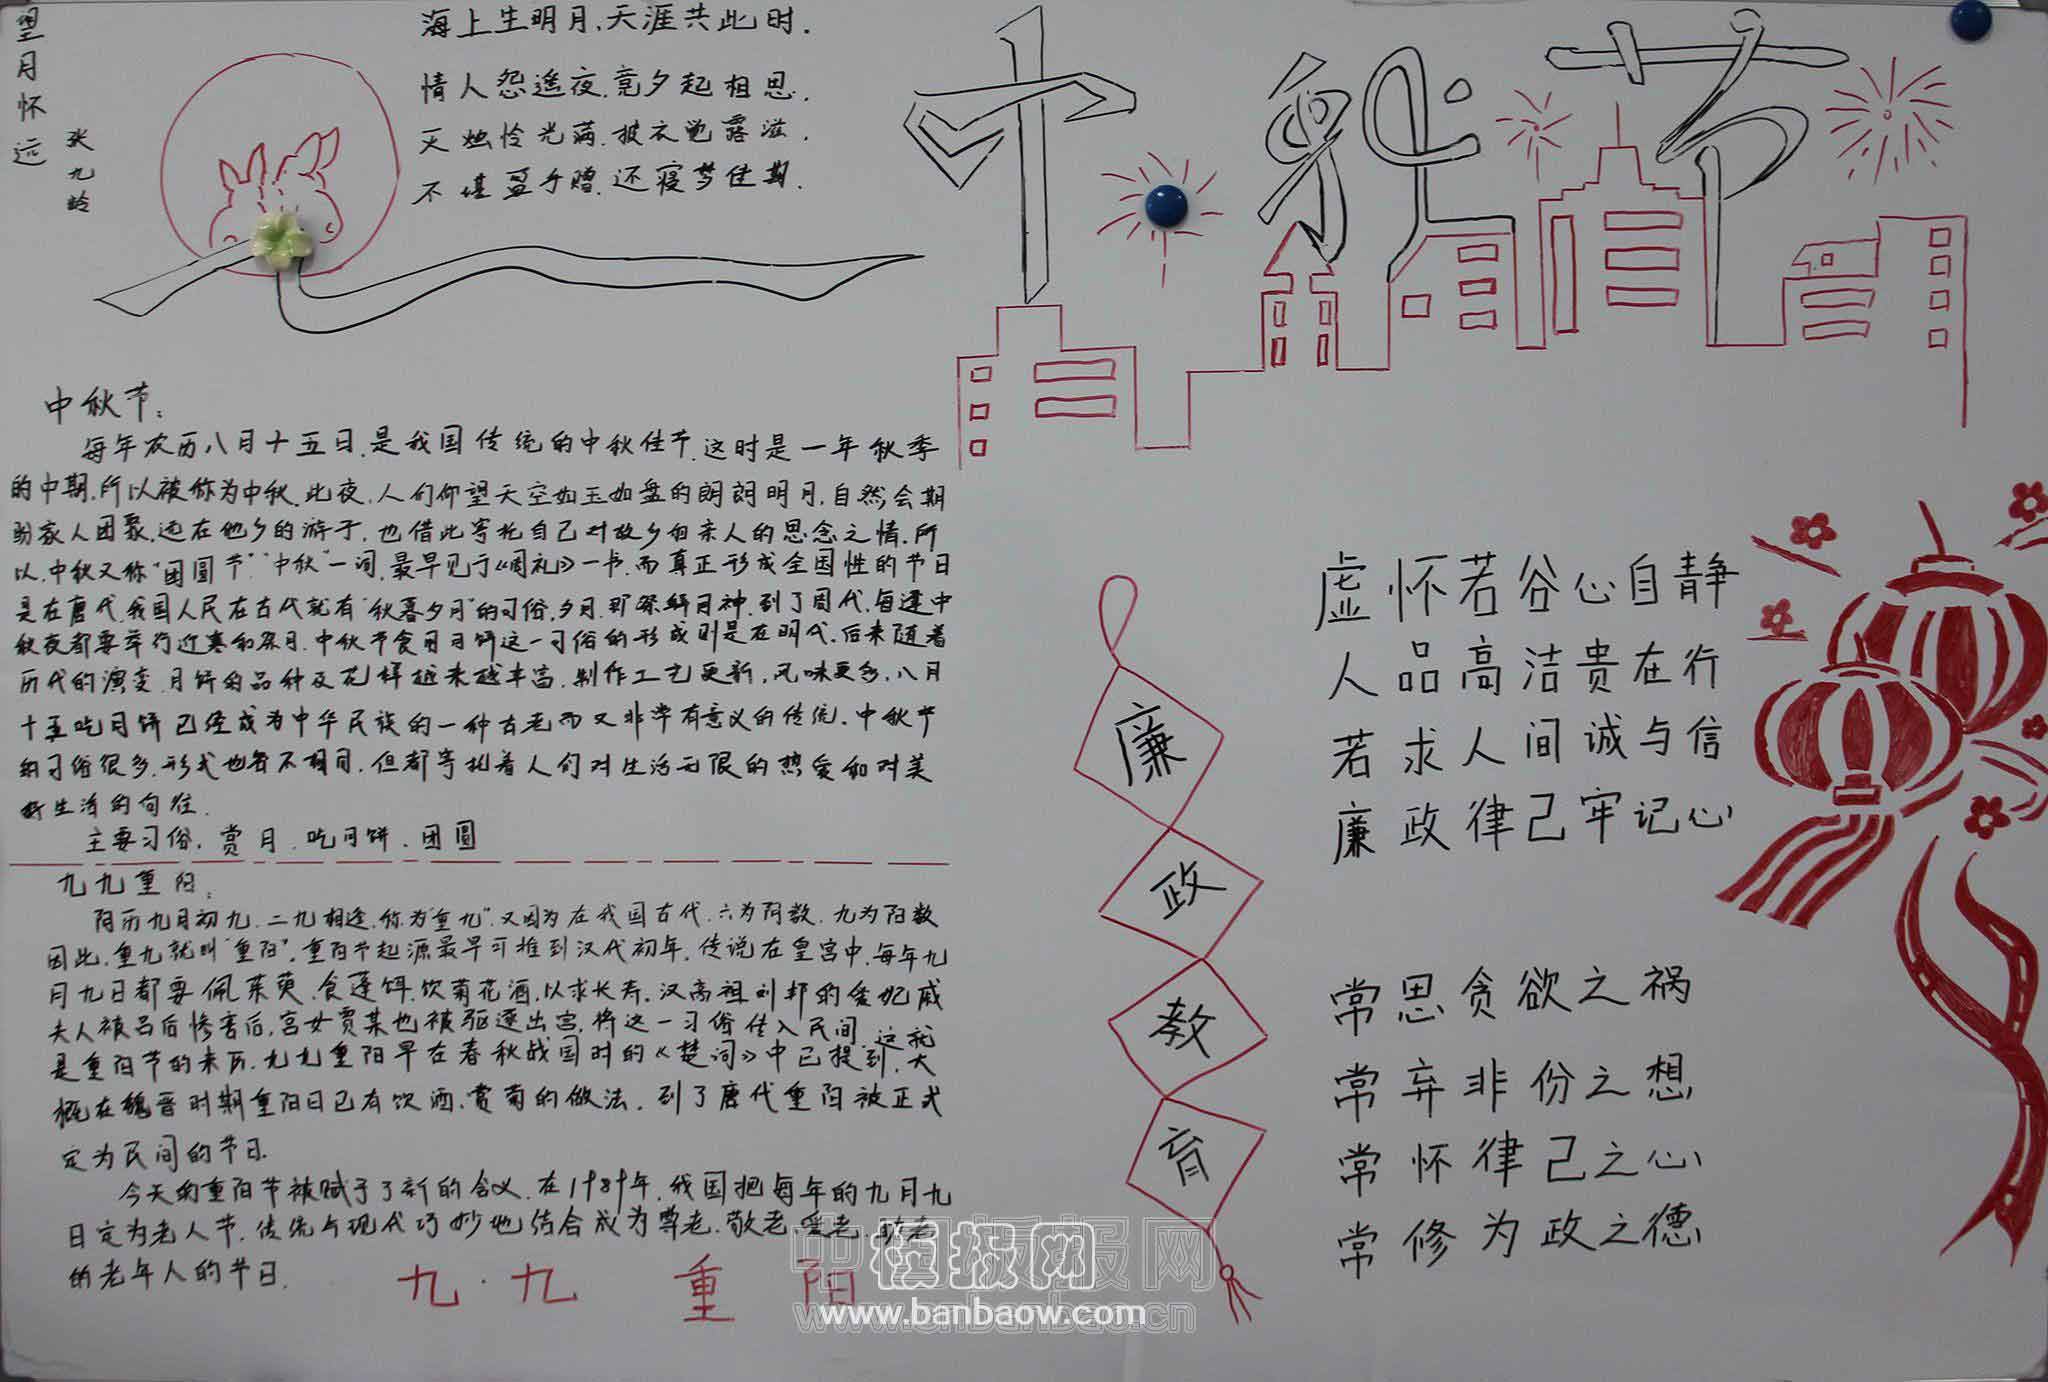 望月怀远
张九龄
海上生明月,天涯共此时.
情人怨遥夜.竟夕起相思.
灭烛怜光满.披衣觉露滋.
不堪盈手赠.还寝梦佳期.
中秋节
中秋节:
每年农历八月十五日.是我国传统的中秋佳节.这时是一年秋季
的中期.所以被称为中秋.此夜.人们仰望天空如玉如盘的朗朗明月.自然会期
盼家人团聚.远在他乡的游子.也借此寄托自己对故乡和亲人的思念之情.所
以.中秋又称"团圆节""中秋"一词.最早见于《周礼》一书.而真正形成全国性的节日
是在唐代.我国人民在古代就有"秋暮夕月"的习俗.夕月.即祭拜月神.到了周代.每逢中
秋夜都要举行迎寒和祭月.中秋节食月饼这一习俗的形成则是在明代.后来随着
历代的演变.月饼的品种及花样越来越丰富.制作工艺更新,风味更多.八月
十五吃月饼已经成为中华民族的一种古老而又非常有意义的传统.中秋节
的习俗很多.形式也各不相同.但都寄托着人们对生活无限的热爱和对美
好生活的向往.
主要习俗.赏月.吃月饼.团圆
九九重阳:
阴历九月初九.二九相逢.称为"重九".又因为在我国古代.六为阴数.九为阳数
因此.重九就叫"重阳".重阳节起源最早可推到汉代初年.传说在皇宫中.每年九
月九日都要佩茱萸.食蓬饵.饮菊花酒.以求长寿.汉高祖刘邦的爱妃戚
夫人被吕后惨害后.宫女贾某也被驱逐出宫.将这一习俗传入民间.这就
是重阳节的来历.九九重阳早在春秋战国时的《楚词》中已提到.大
概在魏晋时期重阳日已有饮酒.赏菊的做法.到了唐代重阳被正式
定为民间的节日.
今天的重阳节被赋予了新的含义.在1989年.我国把每年的九月九
日定为老人节.传统与现代巧妙地结合成为尊老.敬老.爱老.助老
的老年人的节日.
九·九 重 阳
廉
政
教
育
虚怀若谷心自静
人品高洁贵在行
若求人间诚与信
廉政律己牢记心
常思贪欲之祸
常弃非份之想
常怀律己之心
常修为政之德
www.banbaow.com